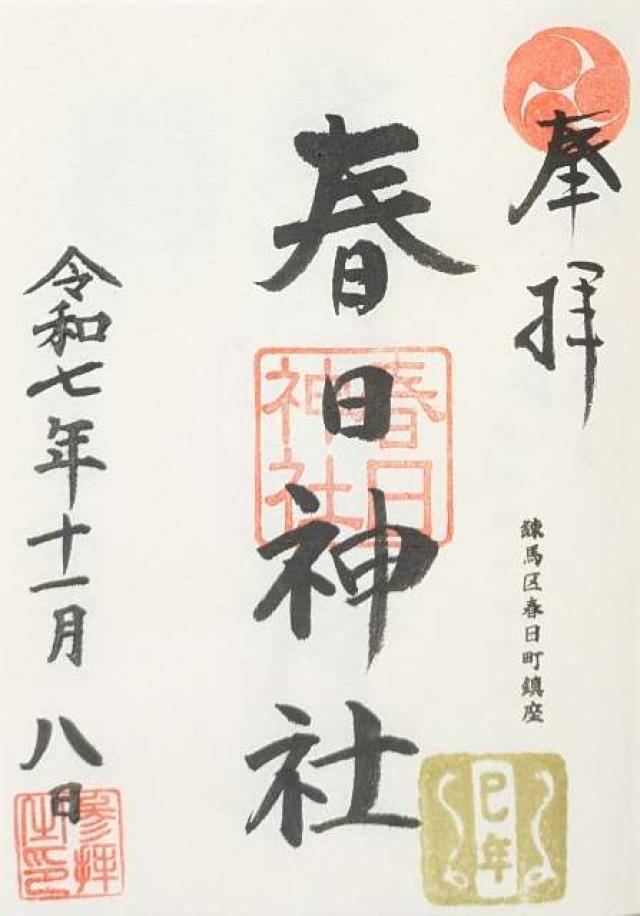 奉拝
練馬区春日町鎮座
巳年
春日神社
春日
神社
令和七年十一月八日
参拝
之印